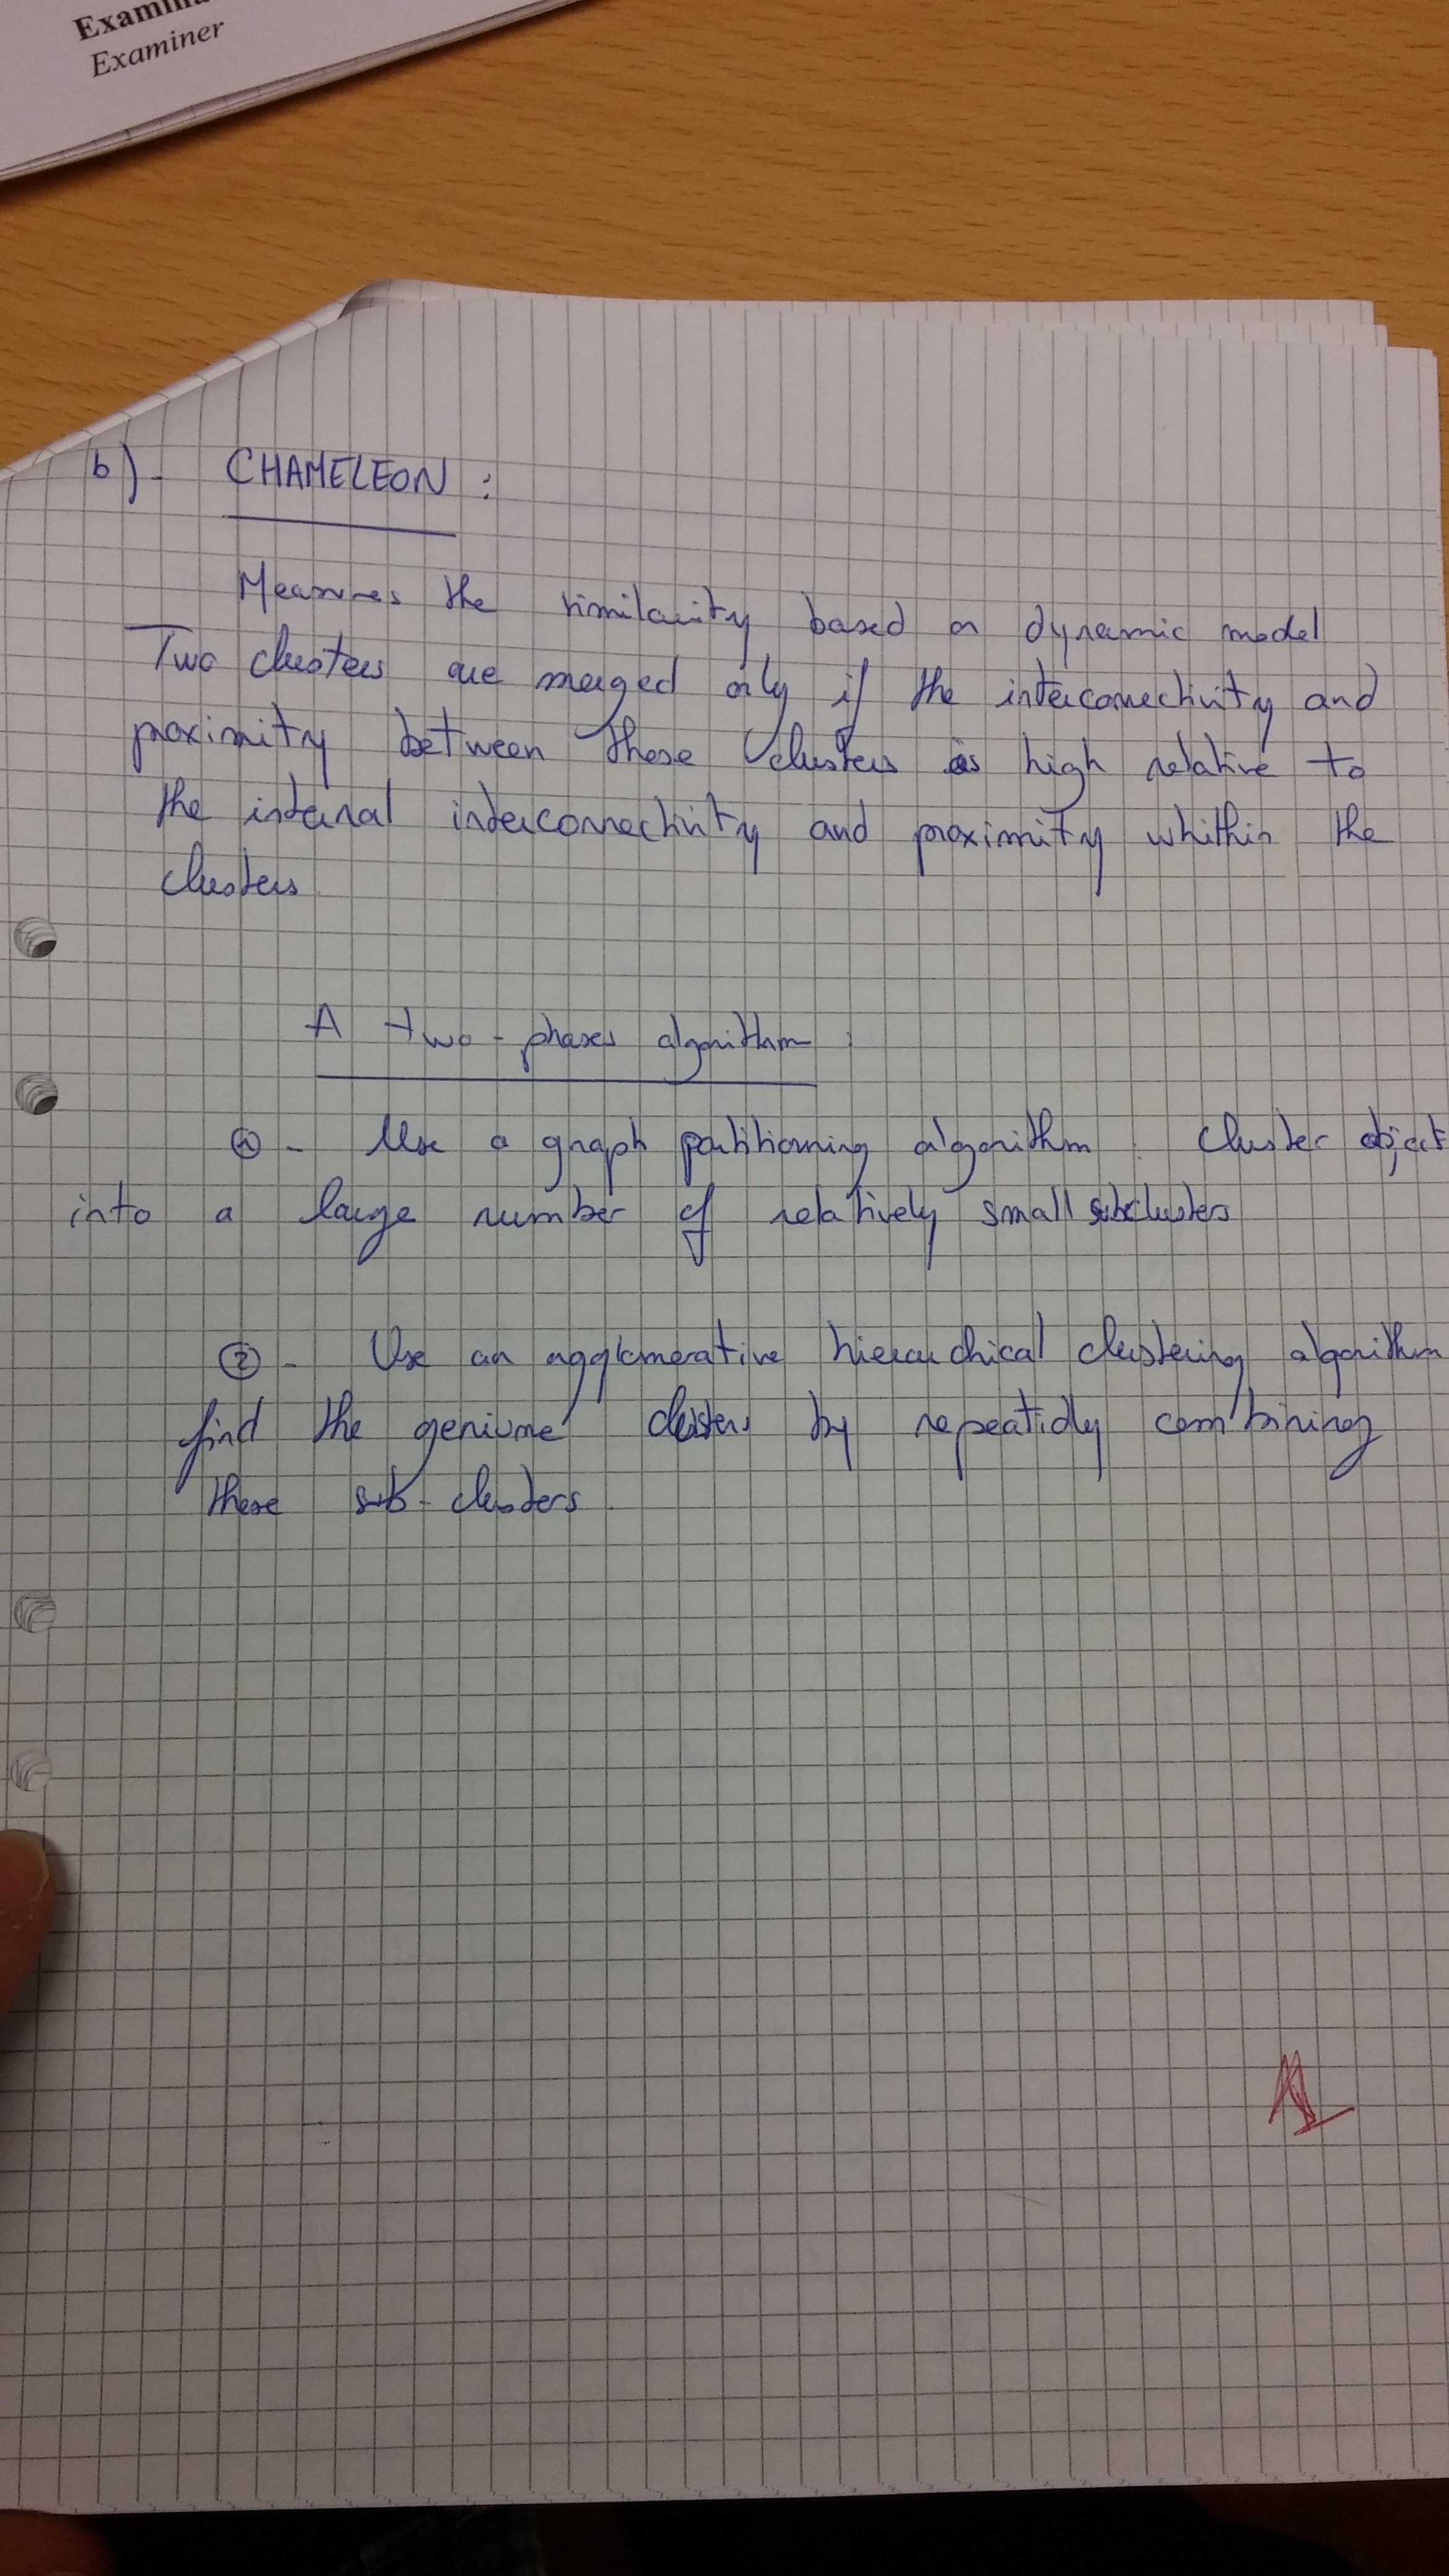 Examiner
b)- CHAMELEON :
Measures the similarity based on dynamic model
Two clusters are merged only if the interconectivity and
proximity between these clusters is high relative to
the internal interconnectivity and proximity whithin the
clusters
A two-phases algorithm :
① - Use a graph partitioning algorithm : cluster object
into a large number of relatively small subclusters
② - Use an agglomerative hierarchical clustering algorithm
find the geniune clusters by repeatidly combining
these sub-clusters